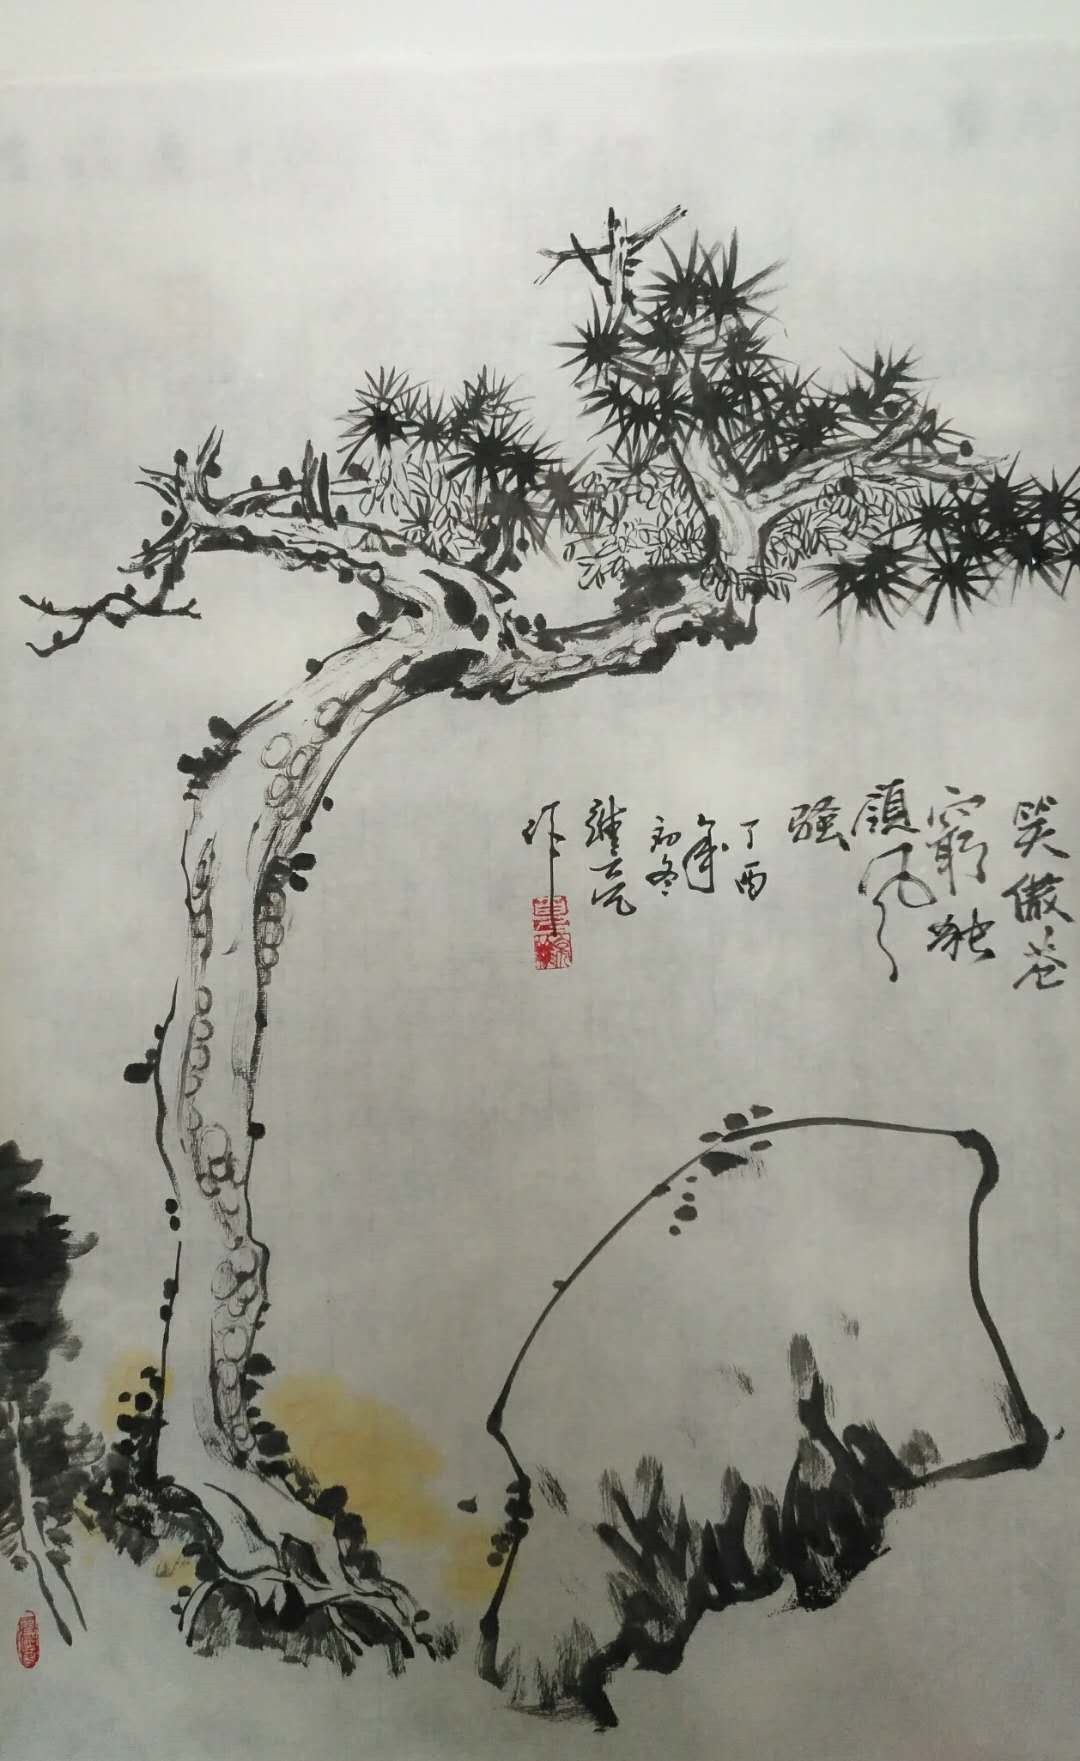 笑傲苍
穹独
领风
骚
丁酉
年
初冬
继
作